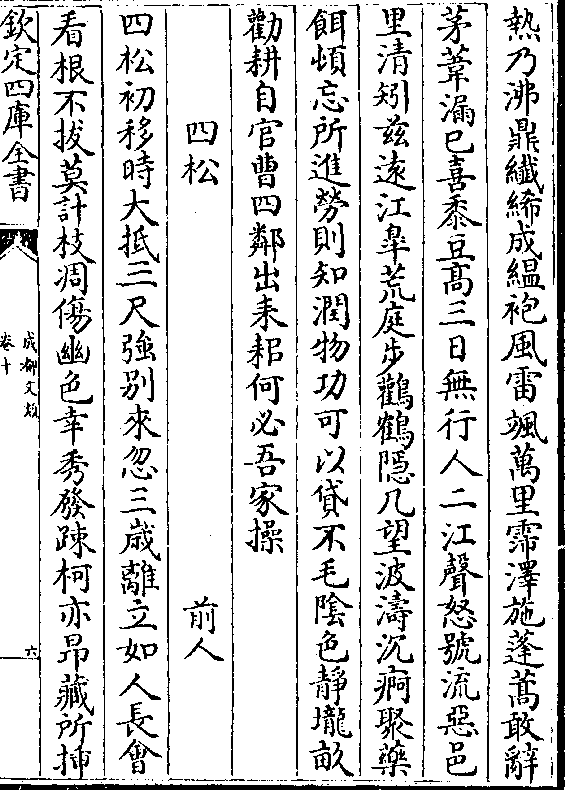 熱乃沸鼎纖絺成緼袍風雷颯萬里霈澤施蓬蒿敢辭
茅葦漏已喜黍豆高三日無行人二江聲怒號流惡邑
里清矧兹逺江臯荒庭步鸛鶴隠几望波濤沉痾聚藥
餌頓忘所進勞則知潤物功可以貸不毛隂色静壠畝
勸耕自官曹四鄰出耒耜何必吾家操
四松 前人
四松初移時大抵三尺強别來忽三歳離立如人長㑹
看根不拔莫計枝凋傷幽色幸秀發疎柯亦昻藏所揷
欽定四庫全書
成都文類
卷十
六